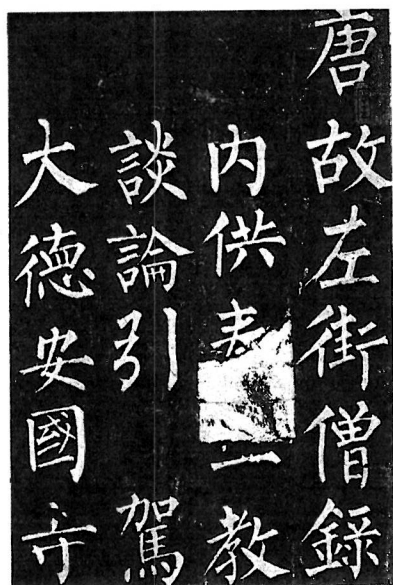 唐故左街僧錄
内供教
談論引 駕
大徳安國寺